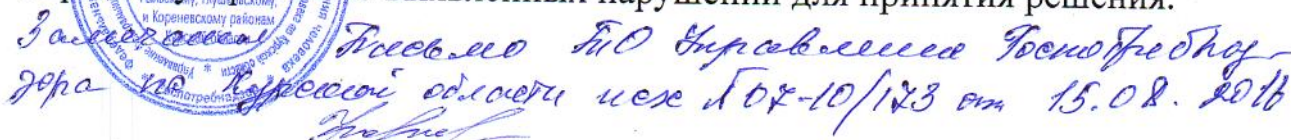 нарушений для принятия решения.
и Кореневскому районам
Письмо ТО Управления Роспотребнад-
зора по Курской области исх №07-10/173 от 15.08.2016